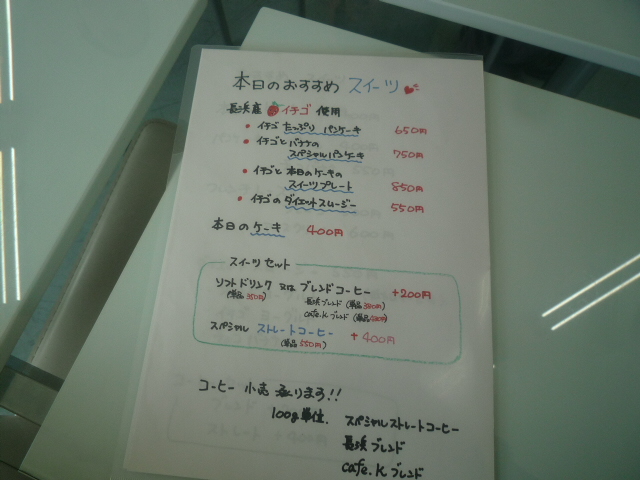 本日のおすすめ スイーツ
長浜産 イチゴ 使用
・イチゴ たっぷり パンケーキ 650円
・イチゴと バナナの
スペシャルパンケーキ 750円
・イチゴと 本日のケーキの
スイーツプレート 850円
・イチゴの ダイエットスムージー 550円
本日の ケーキ 400円
スイーツ セット
ソフトドリンク or ブレンドコーヒー +200円
(単品 350円) 長浜ブレンド (単品 350円)
cafe.K ブレンド (単品 円)
スペシャル ストレートコーヒー +400円
(単品 550円)
コーヒー 小売 承ります!!
100g単位. スペシャルストレートコーヒー
長浜ブレンド
cafe.K ブレンド